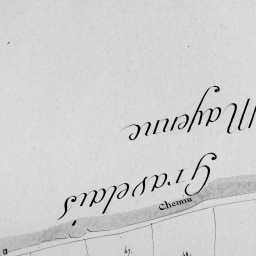 Mayenne
Gravelais
Chemin
47.